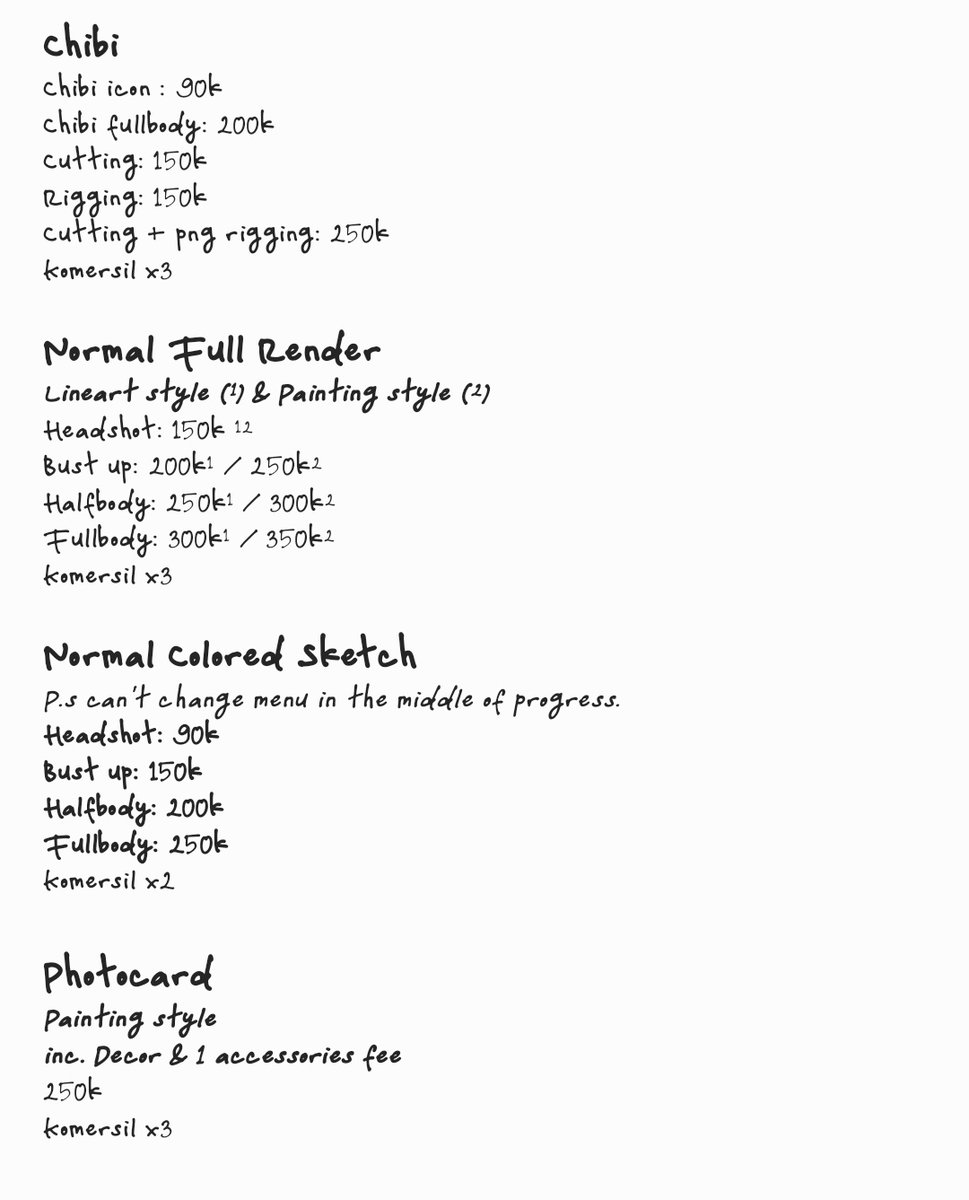 Chibi
Chibi icon : 90k
Chibi fullbody: 200k
Cutting: 150k
Rigging: 150k
Cutting + png rigging: 250k
komersil x3
Normal Full Render
Lineart style (1) & Painting style (2)
Headshot: 150k ¹²
Bust up: 200k¹ / 250k²
Halfbody: 250k¹ / 300k²
Fullbody: 300k¹ / 350k²
komersil x3
Normal Colored Sketch
P.s can't change menu in the middle of progress.
Headshot: 90k
Bust up: 150k
Halfbody: 200k
Fullbody: 250k
komersil x2
Photocard
Painting style
inc. Decor & 1 accessories fee
250k
komersil x3